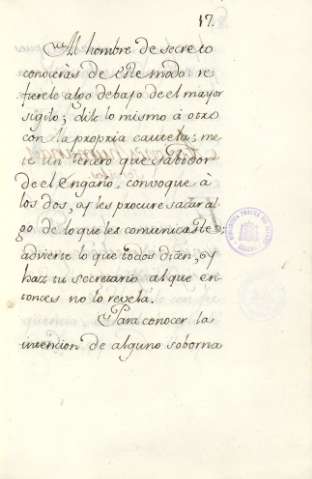 17.
Al hombre de secreto
conocerás de este modo re
fierelo algo debajo de el mayor
sigilo; dile lo mismo à otro
con la propria cautela; me
te un tercero que sabidor
de el Engaño, convoque à
los dos, y les procure sacar al
go de lo que les comunicaste
advierte lo que todos dizen, y
haz tu secretario al que en
tonces no lo revela.
Para conocer la
intencion de alguno soborna